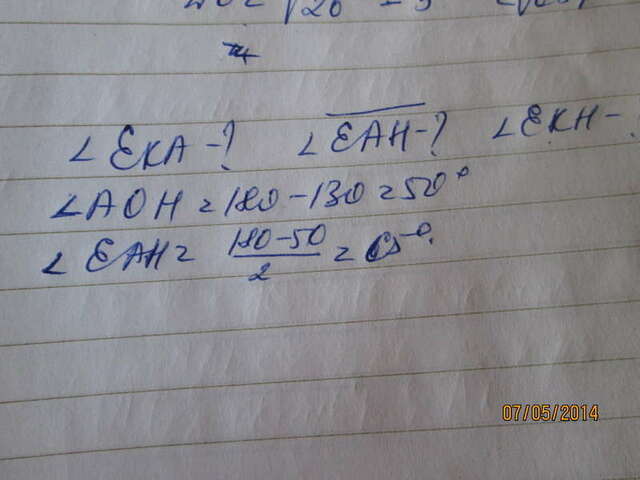 ∠EKA-? ∠EAH-? ∠EKH-
∠AOH=180-130=50°
∠EAH= (180-50)/2 = 65°.
07/05/2014